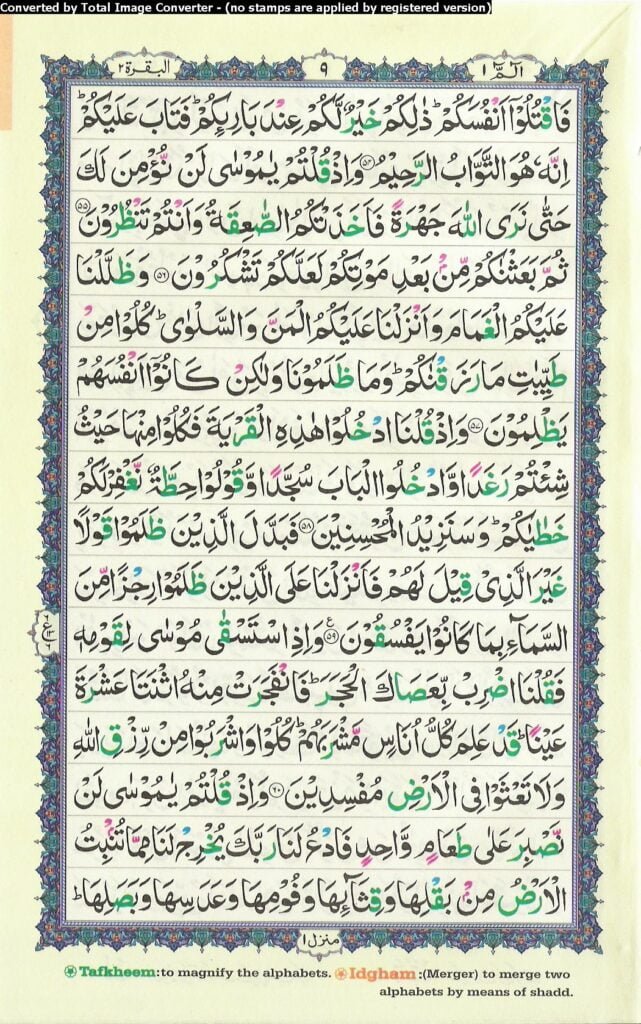 Converted by Total Image Converter - (no stamps are applied by registered version)
الٓمّٓ ١ ٩ البقرة ٢
فَاقْتُلُوْۤا اَنْفُسَكُمْ ؕ ذٰلِكُمْ خَيْرٌ لَّكُمْ عِنْدَ بَارِئِكُمْ ؕ فَتَابَ عَلَيْكُمْ ؕ
اِنَّهٗ هُوَ التَّوَّابُ الرَّحِيْمُ ۝۵۴ وَاِذْ قُلْتُمْ يٰمُوْسٰى لَنْ نُّؤْمِنَ لَكَ
حَتّٰى نَرَى اللّٰهَ جَهْرَةً فَاَخَذَتْكُمُ الصّٰعِقَةُ وَاَنْتُمْ تَنْظُرُوْنَ ۝۵۵
ثُمَّ بَعَثْنٰكُمْ مِّنْۢ بَعْدِ مَوْتِكُمْ لَعَلَّكُمْ تَشْكُرُوْنَ ۝۵۶ وَظَلَّلْنَا
عَلَيْكُمُ الْغَمَامَ وَاَنْزَلْنَا عَلَيْكُمُ الْمَنَّ وَالسَّلْوٰى ؕ كُلُوْا مِنْ
طَيِّبٰتِ مَا رَزَقْنٰكُمْ ؕ وَمَا ظَلَمُوْنَا وَلٰكِنْ كَانُوْۤا اَنْفُسَهُمْ
يَظْلِمُوْنَ ۝۵۷ وَاِذْ قُلْنَا ادْخُلُوْا هٰذِهِ الْقَرْيَةَ فَكُلُوْا مِنْهَا حَيْثُ
شِئْتُمْ رَغَدًا وَّادْخُلُوا الْبَابَ سُجَّدًا وَّقُوْلُوْا حِطَّةٌ نَّغْفِرْ لَكُمْ
خَطٰيٰكُمْ ؕ وَسَنَزِيْدُ الْمُحْسِنِيْنَ ۝۵۸ فَبَدَّلَ الَّذِيْنَ ظَلَمُوْا قَوْلًا
غَيْرَ الَّذِيْ قِيْلَ لَهُمْ فَاَنْزَلْنَا عَلَى الَّذِيْنَ ظَلَمُوْا رِجْزًا مِّنَ
السَّمَآءِ بِمَا كَانُوْا يَفْسُقُوْنَ ۝۵۹ وَاِذِ اسْتَسْقٰى مُوْسٰى لِقَوْمِهٖ
فَقُلْنَا اضْرِبْ بِّعَصَاكَ الْحَجَرَ ؕ فَانْفَجَرَتْ مِنْهُ اثْنَتَا عَشْرَةَ
عَيْنًا ؕ قَدْ عَلِمَ كُلُّ اُنَاسٍ مَّشْرَبَهُمْ ؕ كُلُوْا وَاشْرَبُوْا مِنْ رِّزْقِ اللّٰهِ
وَلَا تَعْثَوْا فِى الْاَرْضِ مُفْسِدِيْنَ ۝۶۰ وَاِذْ قُلْتُمْ يٰمُوْسٰى لَنْ
نَّصْبِرَ عَلٰى طَعَامٍ وَّاحِدٍ فَادْعُ لَنَا رَبَّكَ يُخْرِجْ لَنَا مِمَّا تُنْۢبِتُ
الْاَرْضُ مِنْۢ بَقْلِهَا وَقِثَّآئِهَا وَفُوْمِهَا وَعَدَسِهَا وَبَصَلِهَا ؕ
منزل ١
Tafkheem:to magnify the alphabets. Idgham :(Merger) to merge two
alphabets by means of shadd.